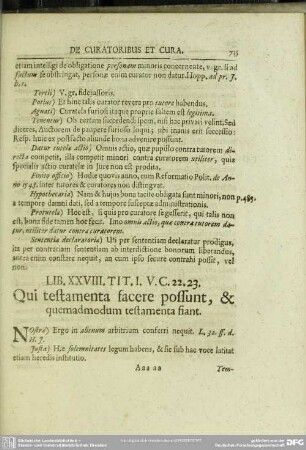 DE CURATORIBUS ET CURA. 735
etiam intelligi de obligatione personam minoris concernente, v. gr. si ad
factum se obstringat, personæ enim curator non datur. Hopp. ad pr. J.
h. t.
Tertii) V. gr. fidejussoris.
Potius) Et hinc talis curator revera pro tutore habendus.
Agnati) Curatela furiosi itaque proprie saltem est legitima.
Teneatur) Ob certam succedendi spem, nisi hac privati velint. Sed
dic eres, Auctorem de paupere furioso loqui; nisi inanis erit successio:
Resp. huic ex post facto aliunde bona advenire possunt.
Datur tutelæ actio) Omnis actio, quæ pupillo contra tutorem di-
recta competit, illa competit minori contra curatorem utiliter, quia
specialis actio curatelæ in Jure non est prodita.
Finito officio) Hodie quovis anno, cum Reformatio Polit. de An-
no 1548. inter tutores & curatores non distingvat.
Hypothecaria) Nem & hujus bona tacite obligata sunt minori, non p. 485.
a tempore damni dati, sed a tempore susceptæ administrationis.
Protutela) Hoc est, si quis pro curatore se gesserit, qui talis non
est, bona sua tamen hoc fecit. Imo omnis actio, quæ contra tutorem da-
tur, utiliter datur contra curatorem.
Sententia declaratoria) Uti per sententiam declaratur prodigus,
ita per contrariam sententiam ab interdictione bonorum liberandus,
antea enim constare nequit, an cum ipso secure contrahi possit, vel
non.
LIB. XXVIII. TIT. I. V. C. 22. 23.
Qui testamenta facere possunt, &
quemadmodum testamenta fiant.
Nostra) Ergo in alienum arbitrium conferri nequit. L. 32. ff. d.
H. J.
Justa) Hæ solemnitates legum habens, & sic sub hac voce latitat
etiam heredis institutio.
Aaa aa Tem-